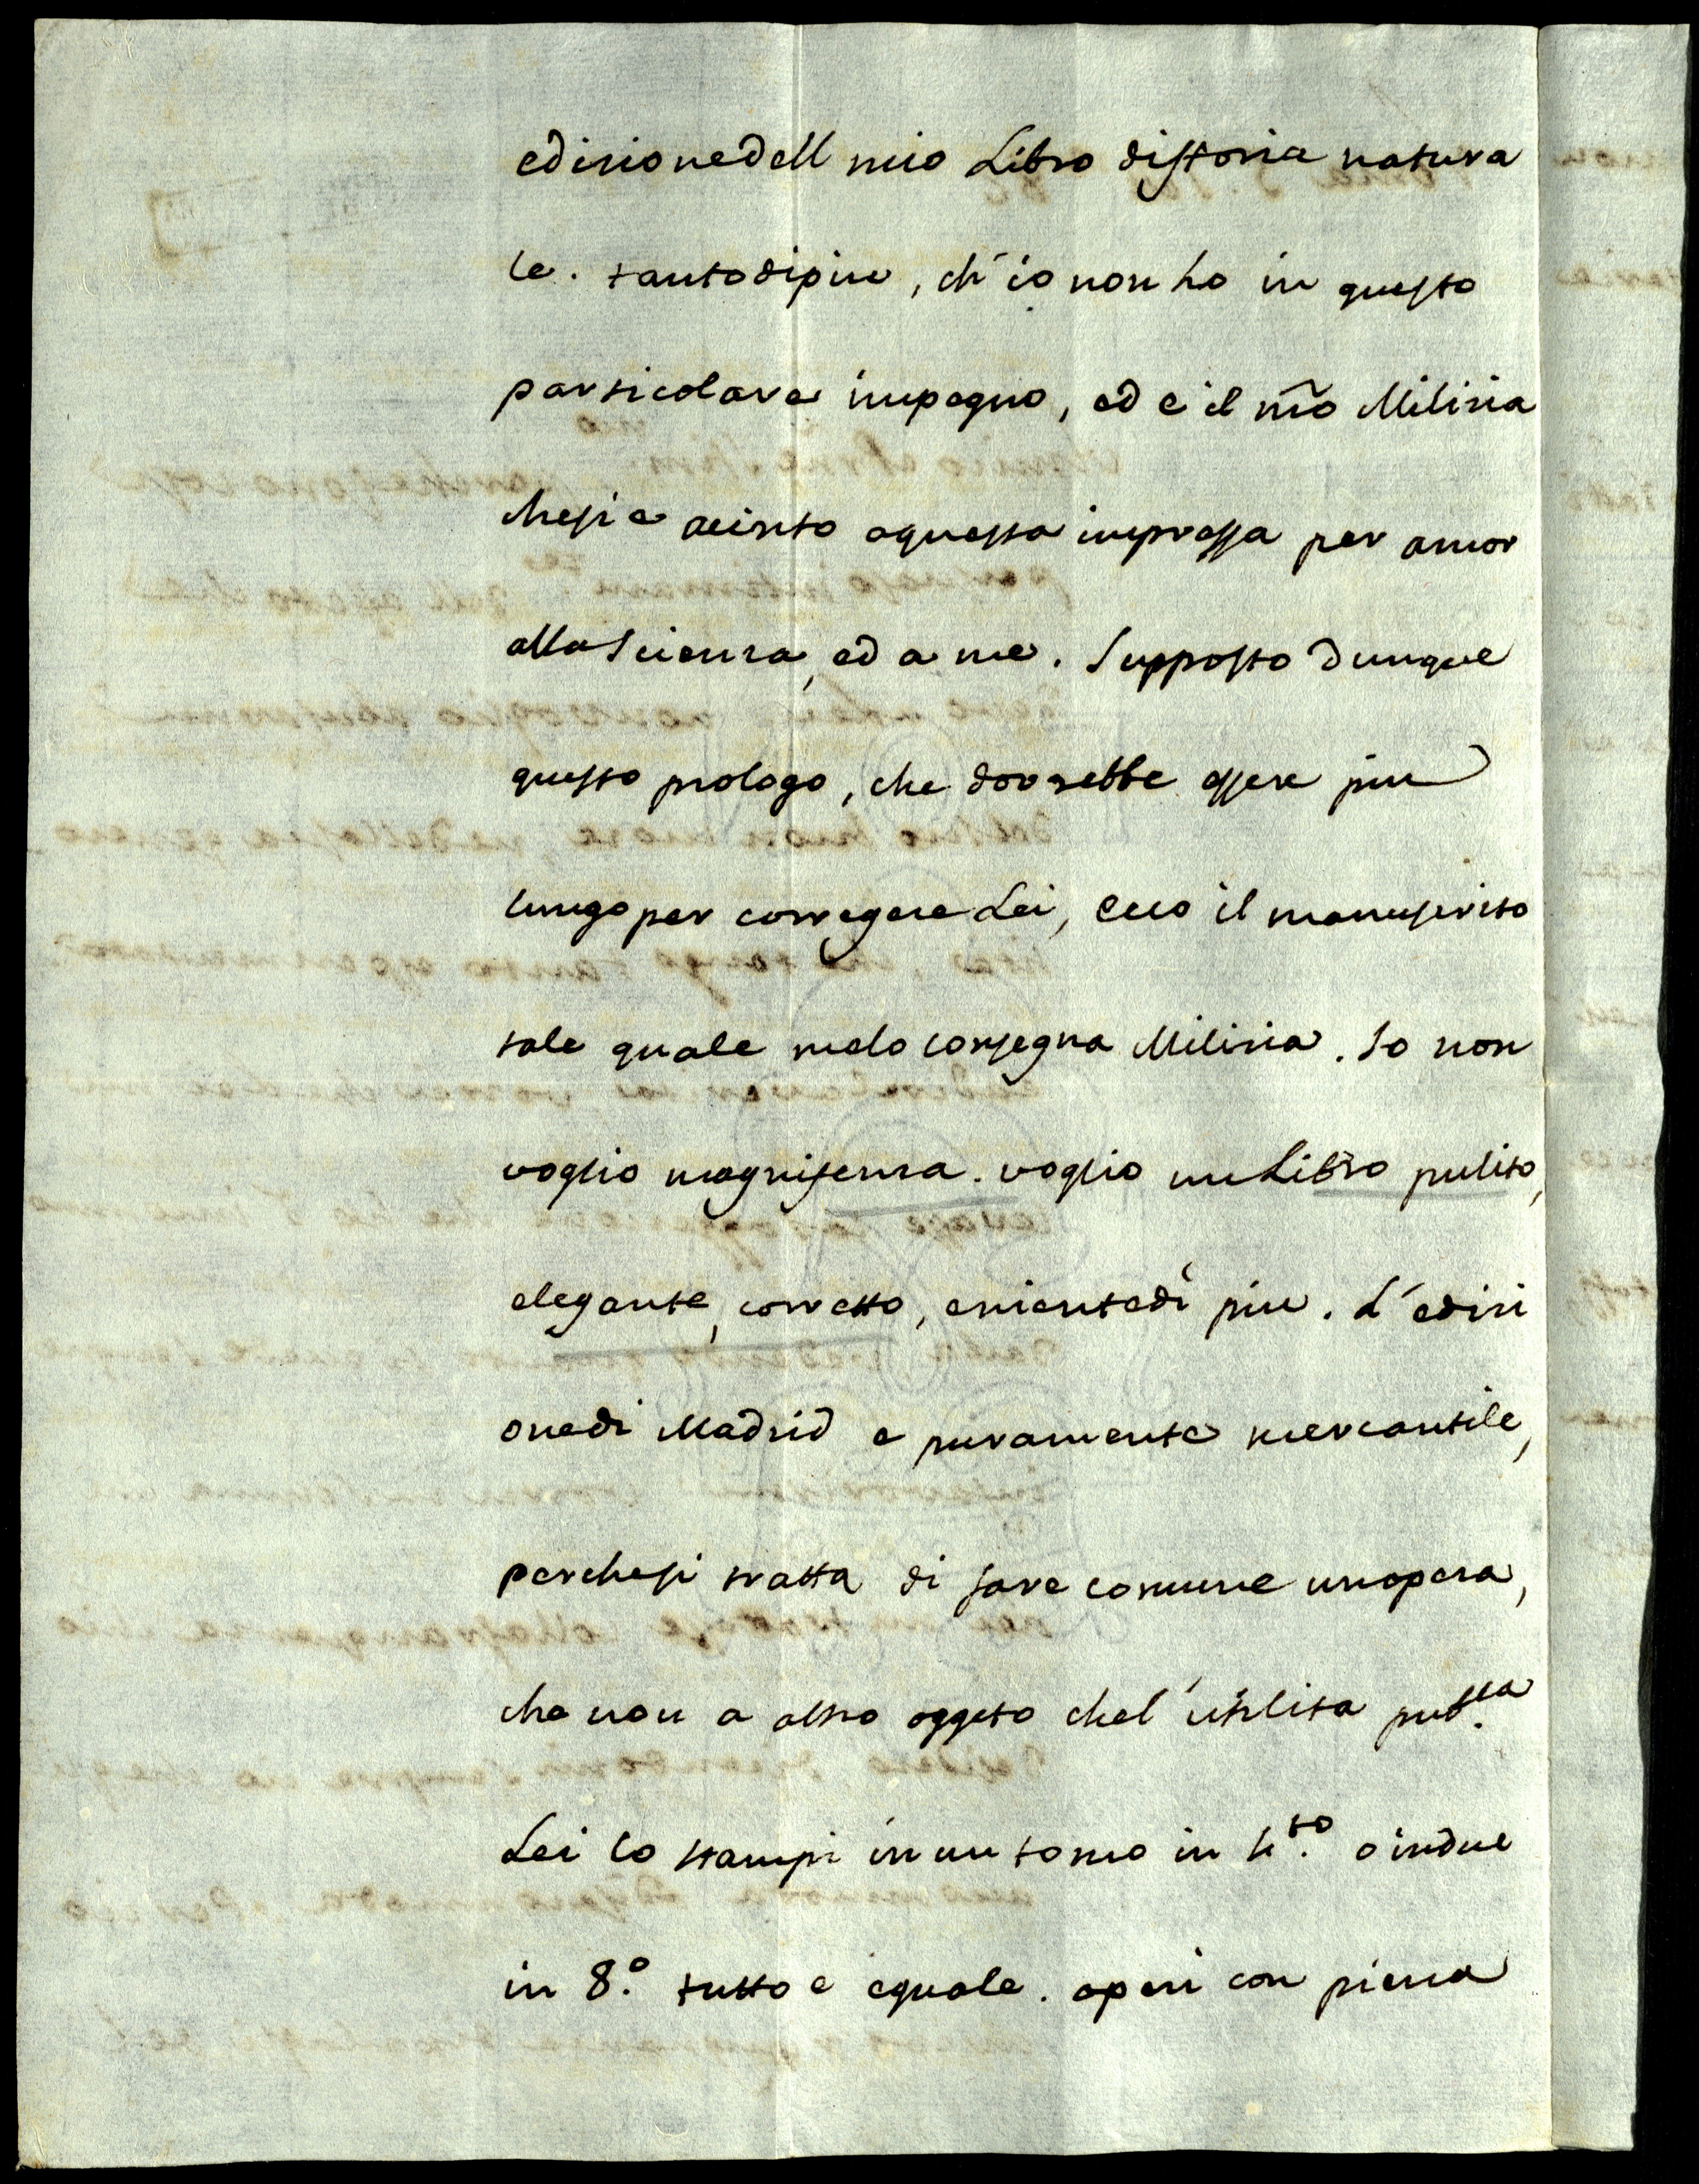 edizionedell mio Libro distoria natura
le. tantodipiu, ch'io non ho in questo
particolare impegno, ed e il nr̃o Milizia
chesi e accinto aquesta impressa per amor
alla Scienza, ed a me. Supposto dunque
questo prologo, che dovrebbe essere piu
lungo per corregere Lei, ecco il manuscrito
tale quale melo consegna Milizia. Io non
voglio magnifenza. voglio un Libro pulito,
elegante, corretto, enientedi piu. L'edizi
onedi Madrid e puramente mercantile,
perchesi tratta di fare comune unopera,
che non a altro oggeto chel'utilita pub.ca
Lei lo stampi in un tomo in 4.to o indue
in 8.o tutto e equale. operi con piena